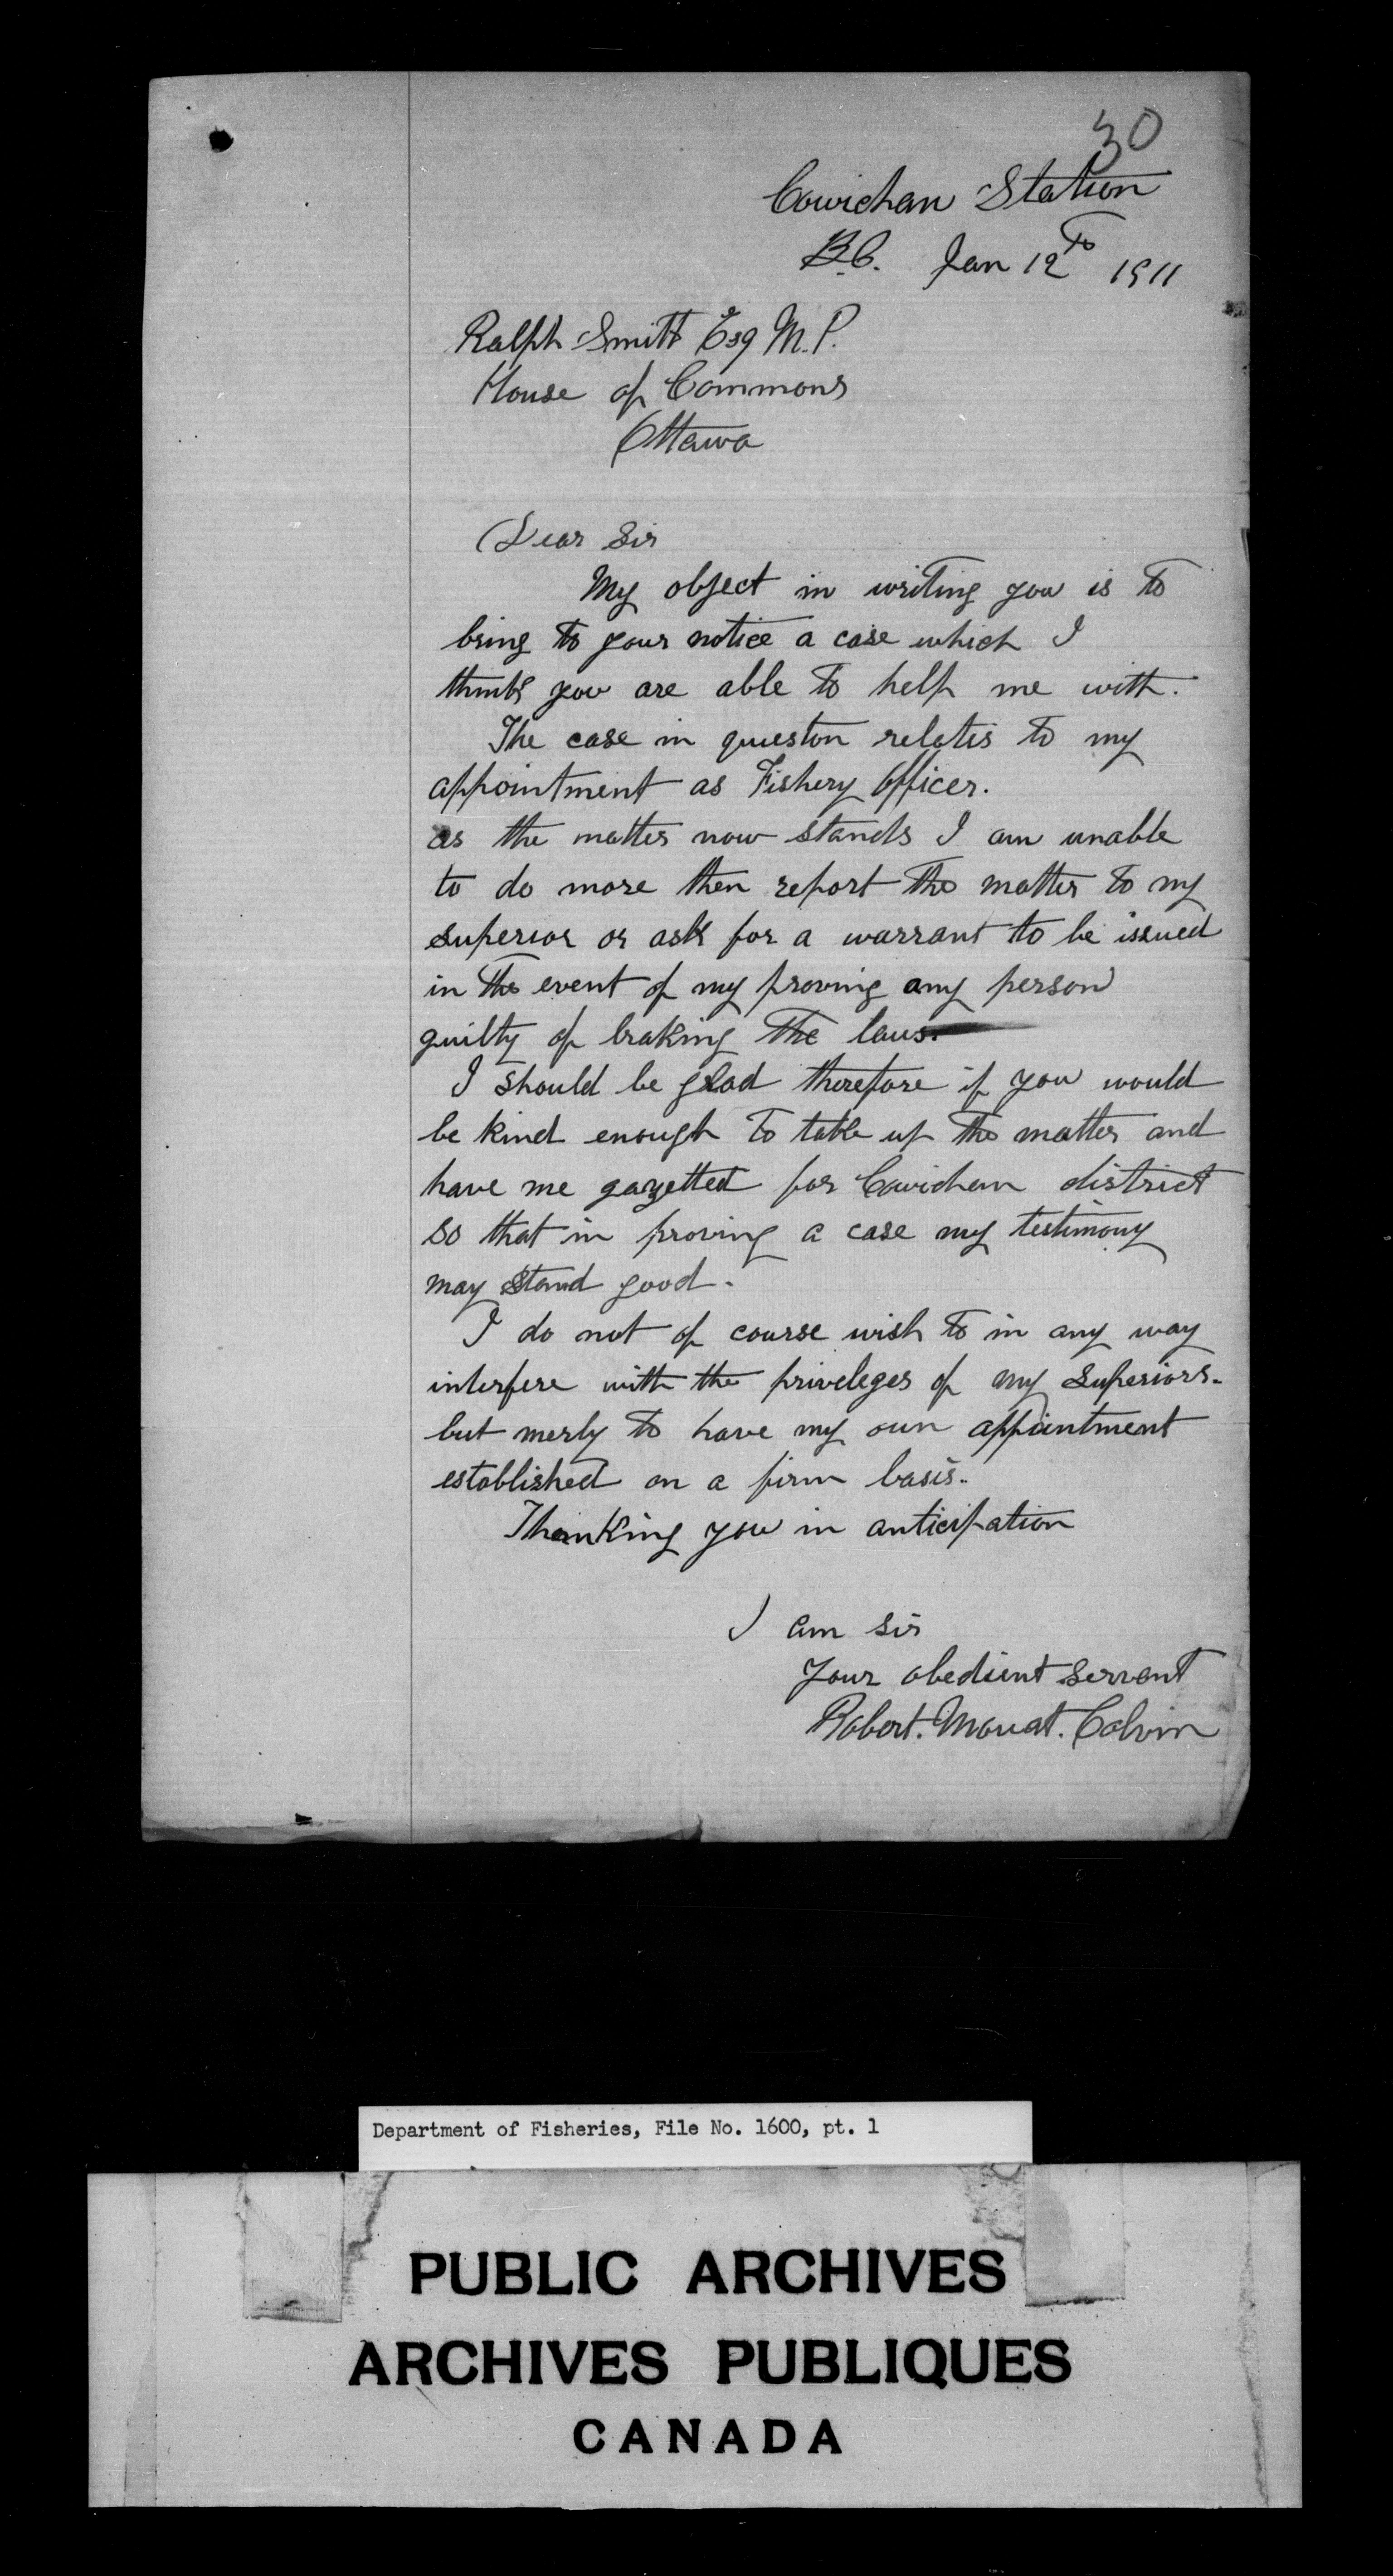 30
Cowichan Station
B.C. Jan 12th 1911
Ralph Smith Esq M.P.
House of Commons
Ottawa
Dear Sir
My object in writing you is to
bring to your notice a case which I
think you are able to help me with.
The case in queston relates to my
appointment as Fishery Officer.
as the matter now stands I am unable
to do more then report the matter to my
superior or ask for a warrant to be issued
in the event of my proving any person
guilty of braking the laws.
I should be glad therefore if you would
be kind enough to take up the matter and
have me gazetted for Cowichan district
so that in proving a case my testimony
may stand good.
I do not of course wish to in any way
interfere with the priveleges of my superiors.
but merly to have my own appointment
established on a firm basis.
Thanking you in anticipation
I am sir
your obedient servant
Robert. Mouat. Colvin
Department of Fisheries, File No. 1600, pt. 1
PUBLIC ARCHIVES
ARCHIVES PUBLIQUES
CANADA